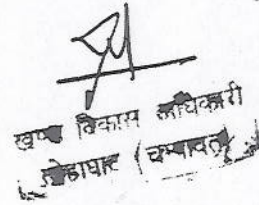 खण्ड विकास अधिकारी
लोहाघाट (चम्पावत)